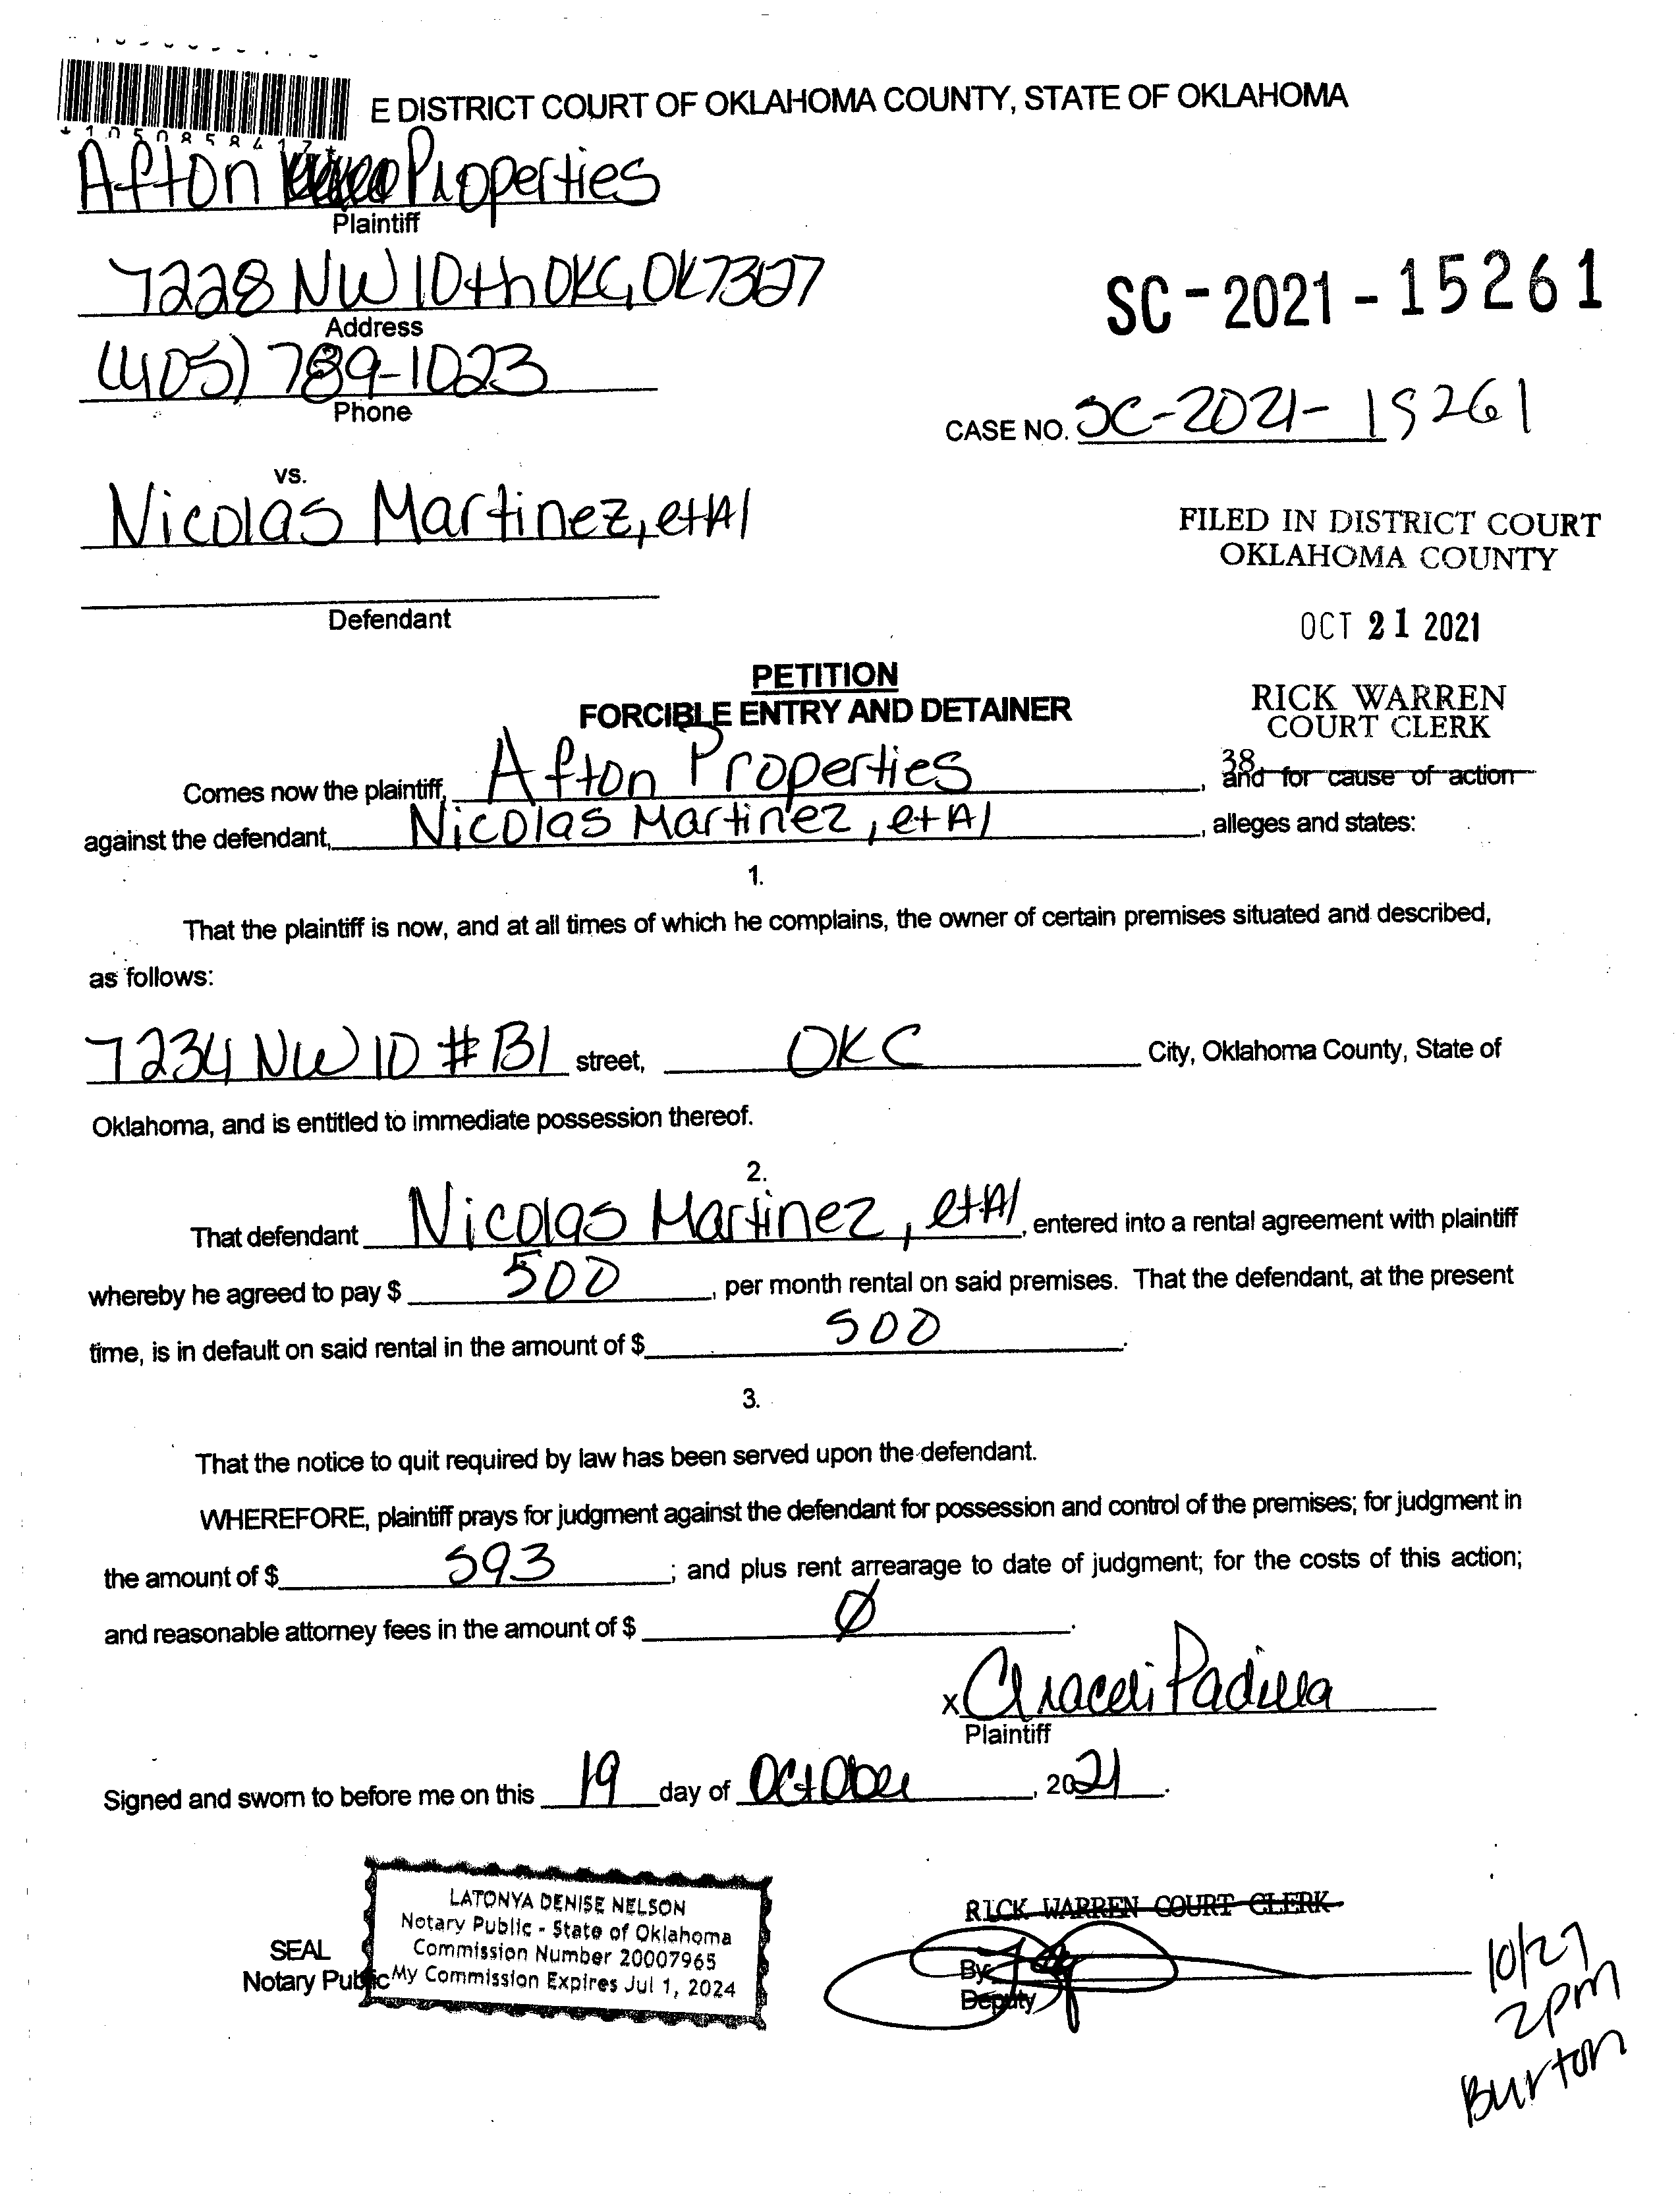 *1050858417*
E DISTRICT COURT OF OKLAHOMA COUNTY, STATE OF OKLAHOMA
Afton Properties
Plaintiff
7228 NW 10th OKC, OK 73127
Address
SC-2021-15261
(405) 789-1023
Phone
CASE NO. SC-2021-15261
vs.
Nicolas Martinez, et Al
FILED IN DISTRICT COURT
OKLAHOMA COUNTY
Defendant
OCT 21 2021
PETITION
FORCIBLE ENTRY AND DETAINER
RICK WARREN
COURT CLERK
38
Comes now the plaintiff, Afton Properties, and for cause of action
against the defendant, Nicolas Martinez, et Al, alleges and states:
1.
That the plaintiff is now, and at all times of which he complains, the owner of certain premises situated and described,
as follows:
7234 NW 10 #B1 street, OKC City, Oklahoma County, State of
Oklahoma, and is entitled to immediate possession thereof.
2.
That defendant Nicolas Martinez, et Al, entered into a rental agreement with plaintiff
whereby he agreed to pay $ 500, per month rental on said premises. That the defendant, at the present
time, is in default on said rental in the amount of $ 500.
3.
That the notice to quit required by law has been served upon the defendant.
WHEREFORE, plaintiff prays for judgment against the defendant for possession and control of the premises; for judgment in
the amount of $ 593; and plus rent arrearage to date of judgment; for the costs of this action;
and reasonable attorney fees in the amount of $ Ø.
x Araceli Padilla
Plaintiff
Signed and sworn to before me on this 19 day of October, 2021.
LATONYA DENISE NELSON
Notary Public - State of Oklahoma
Commission Number 20007965
My Commission Expires Jul 1, 2024
SEAL
Notary Public
RICK WARREN COURT CLERK
By
Deputy
10/27
2pm
Burton